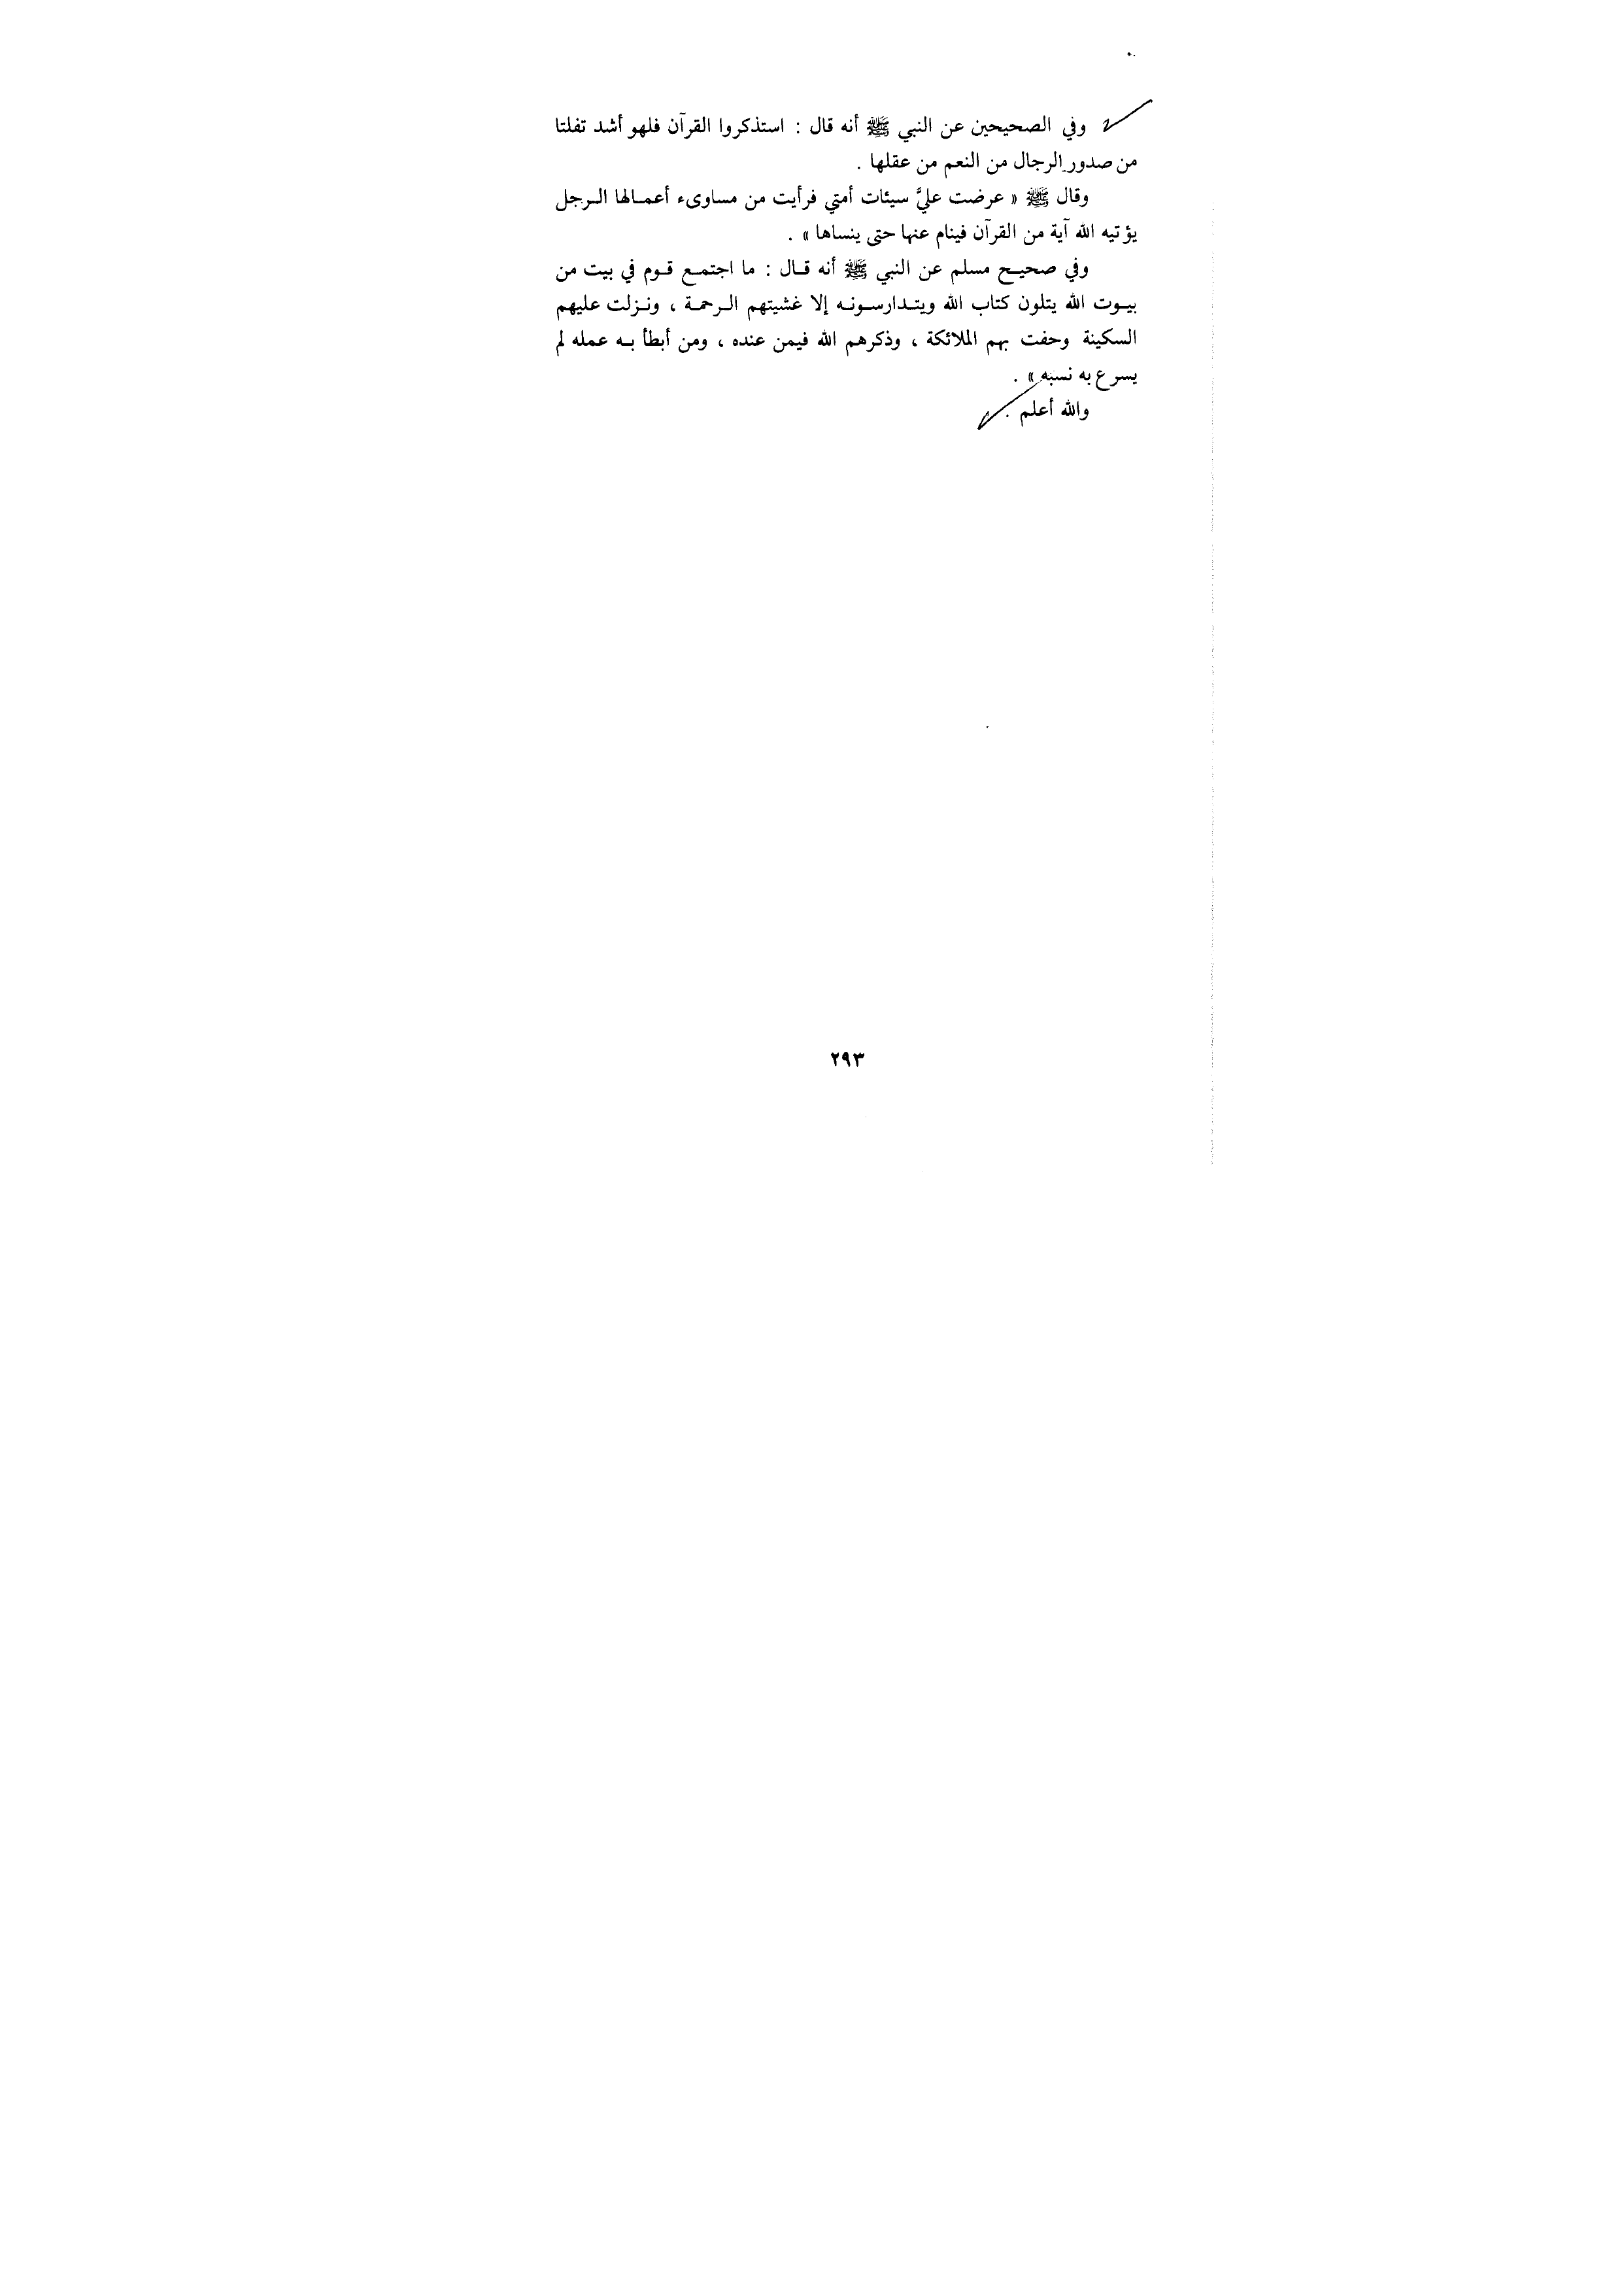 وفي الصحيحين عن النبي ﷺ أنه قال : استذكروا القرآن فلهو أشد تفلتا
من صدور الرجال من النعم من عقلها .
وقال ﷺ « عرضت عليَّ سيئات أمتي فرأيت من مساوىء أعمـالها الـرجل
يؤتيه الله آية من القرآن فينام عنها حتى ينساها » .
وفي صحيـح مسلم عن النبي ﷺ أنه قـال : ما اجتمـع قـوم في بيت من
بيـوت الله يتلون كتاب الله ويتـدارسـونـه إلا غشيتهم الـرحمـة ، ونـزلت عليهم
السكينة وحفت بهم الملائكة ، وذكرهم الله فيمن عنده ، ومن أبطأ بـه عمله لم
يسرع به نسبه » .
والله أعلم .
٢٩٣